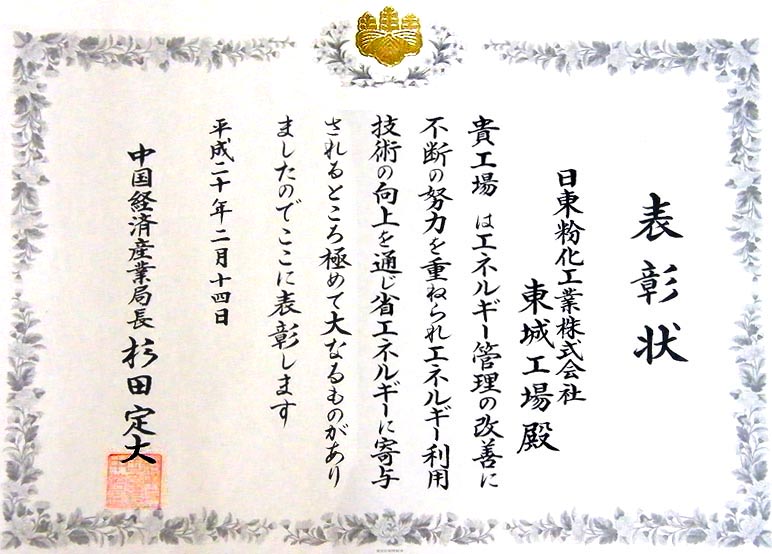 表彰状
日東粉化工業株式会社
東城工場殿
貴工場はエネルギー管理の改善に
不断の努力を重ねられエネルギー利用
技術の向上を通じ省エネルギーに寄与
されるところ極めて大なるものがあり
ましたのでここに表彰します
平成二十年二月十四日
中国経済産業局長 杉田定大